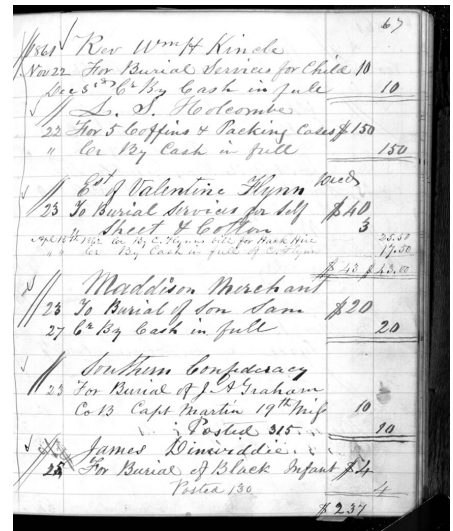 67
1861 Rev Wm H Kincle
Nov 22 For Burial Services for Child 10
Dec 5 Cr By Cash in full 10
L. S. Holcombe
22 For 5 Coffins & Packing Cases $150
" Cr By Cash in full 150
Est of Valentine Flynn
23 To Burial Services for Self $40
" Sheet & Cotton 3
Apl 10th 1862 Cr By C. Flynns bill for Hack Hire 25.50
" " Cr By Cash in full of C. Flynn 17.50
$43 $43.00
Maddison Merchant
23 To Burial of Son Sam $20
27 Cr By Cash in full 20
Southern Confederacy
23 For Burial of J A Graham
Co 13 Capt Martin 19th Mif 10
Posted 315 20
James Dinwiddie
25 For Burial of Black Infant $4
Posted 130 4
$237